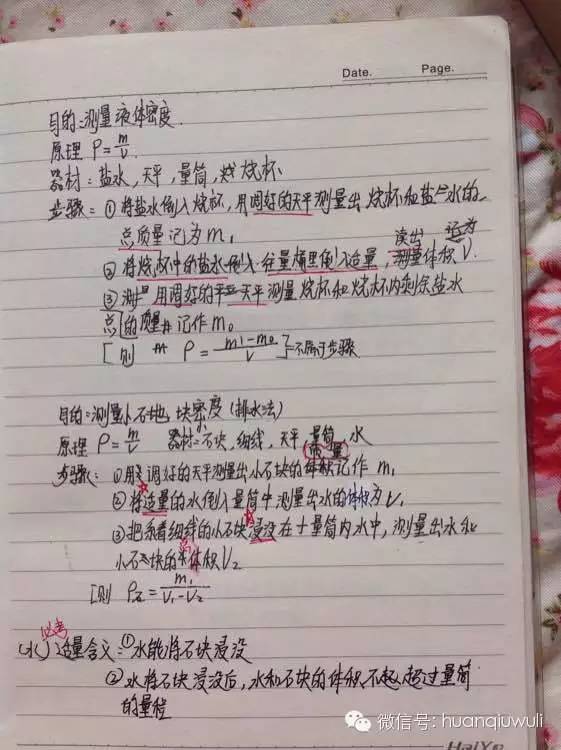 Date. Page.
目的:测量液体密度.
原理 ρ=m/V.
器材:盐水,天平,量筒,烧杯.
步骤:①将盐水倒入烧杯,用调好的天平测量出烧杯和盐水的
总质量记为m₁
读出 记为
②将烧杯中的盐水倒入往量筒里倒入适量,测量体积V.
③用调好的天平测量烧杯和烧杯内剩余盐水
总的质量记作m₀
[则 ρ=(m₁-m₀)/V]=不属于步骤
目的:测量小石块密度(排水法)
原理 ρ=m/V 器材:小石块,细线,天平,量筒,水
质量
步骤:①用调好的天平测量出小石块的体积记作m₁
②将适量的水倒入量筒中测量出水的体积为V₁
③把系着细线的小石块浸没在量筒内水中,测量出水和
小石块的总体积V₂
[则 ρ石=m₁/(V₁-V₂)
必考
(水)适量含义:①水能将石块浸没
②水将石块浸没后,水和石块的体积不超过量筒
的量程
微信号:huanqiuwuli
HaiYe